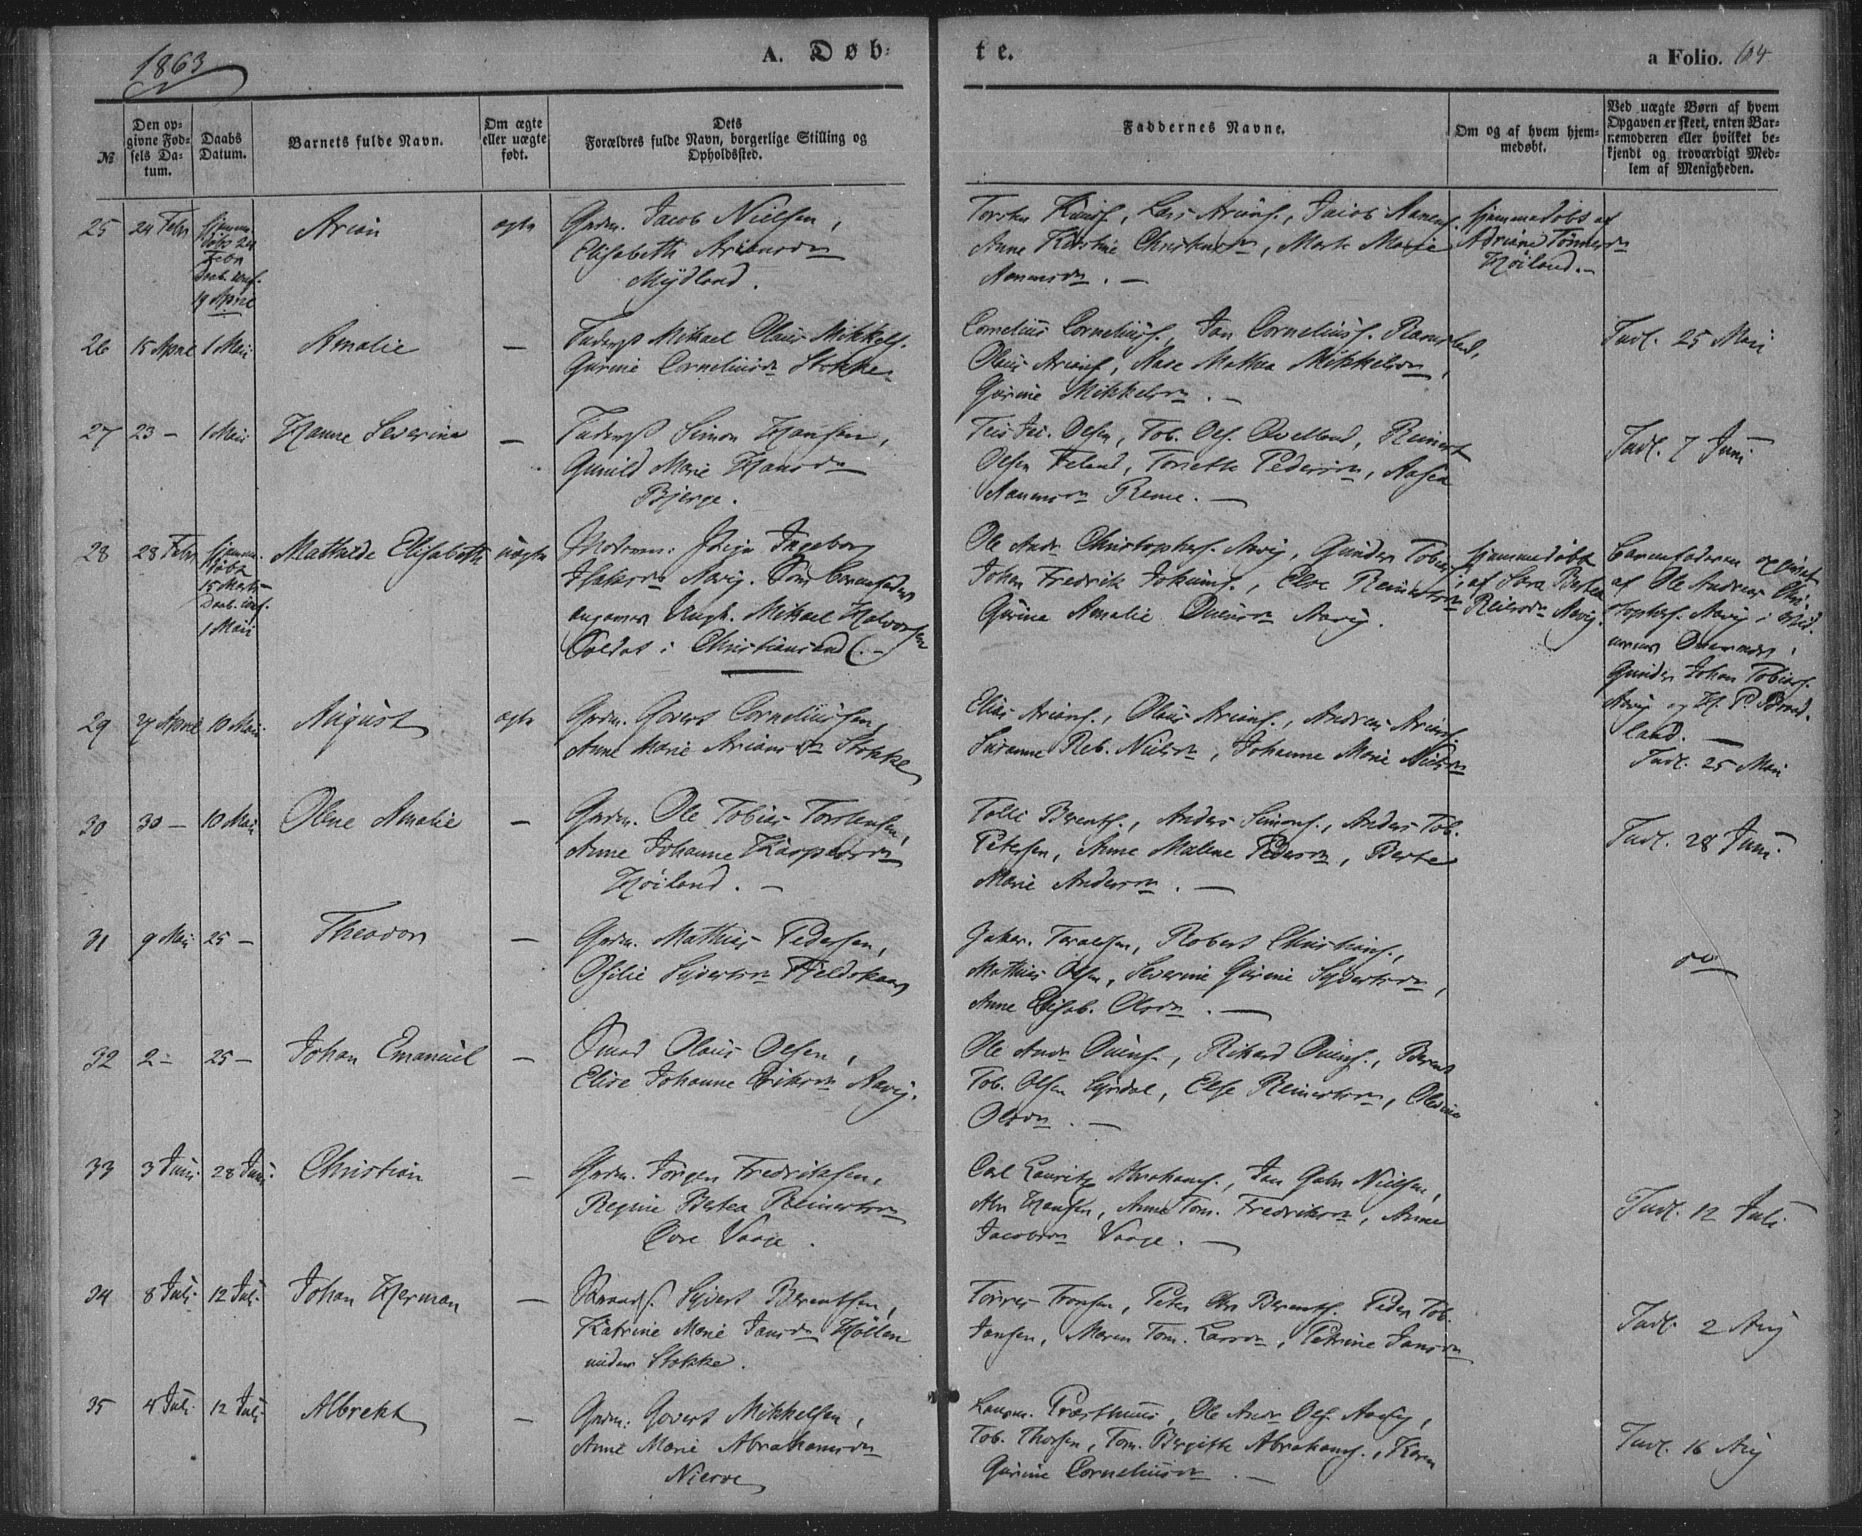 1863
A. Døb-
te.
a Folio. 64
№
Den op-
givne Fød-
sels Da-
tum.
Daabs
Datum.
Barnets fulde Navn.
Om ægte
eller uægte
født.
Dets
Forældres fulde Navn, borgerlige Stilling og
Opholdssted.
Faddernes Navne.
Om og af hvem hjem-
medøbt.
Ved uægte Børn af hvem
Opgaven er skeet, enten Bar-
nemoderen eller hvilket be-
kjendt og troværdigt Med-
lem af Menigheden.
25
24 Febr
hjemme-
døbt 24
Febr
19 April
Arian
ægte
Grdm. Jacob Nielsen,
Elisabeth Ariansdr
Mydland.
Lars Arians., Jacob
Anne Kirstine, Marte Marie
hjemmedøbt af
Adriane Tønnesdr
Høiland. —
26
15 April
1 Mai
Amalie
—
Mikael Olaus Mikkels.
Gurine Corneliusdr Stokke.
Cornelius Corneliuss., Jan Corneliuss.
Olaus Arians, Aase Mathea Mikkelsdr,
Gurine Mikkelsdr. —
Indl. 25 Mai
27
23 —
1 Mai
Hanne Severine
—
Simon Hansen,
Gunild Marie Hansdr
Bjerge.
Olsen, Tob. Ols. Qvelland, Reinert
Olsen, Torette Pedersdr, Aasea
Reme. —
Indl. 7 Juni
28
28 Febr
hjemme-
døbt
15 Marts
1 Mai
Mathilde Elisabeth
uægte
Moderen: Ingeborg
Aavig. Som Barnefader
angives Ungk. Mikael Halvorsen
Soldat i Christiansand (. —
Ole Andr. Christophers. Aavig, Gunder Tobias
Johan Fredrik, Else Reinertsdr
Gurine Amalie Aavig.
hjemmedøbt
af Sara Bertea
Aavig.
Barnefaderen opgivet
af Ole Andreas Chri-
stophers. Aavig
Gunder Johan Tobias.
Aavig og
land. —
29
27 April
10 Mai
August
ægte
Grdm. Govert Corneliussen,
Anne Marie Ariansdr Stokke
Elias Arians., Olaus Arians., Andreas Arians.
Susanne Reb. Nielsdr, Johanne Marie Nielsdr
Indl. 25 Mai
30
30 —
10 Mai
Olene Amalie
—
Grdm. Ole Tobias Torstensen,
Anne Johanne Kaspersdr
Høiland. —
Tolli Berents., Anders Simons., Anders Tob.
Petersen, Anne Malene Pedersdr, Berte
Marie Andersdr. —
Indl. 28 Juni
31
9 Mai
25 —
Theodor
—
Grdm. Mathias Pedersen,
Ofilie Syvertsdr
Robert Christians.,
Mathias Olsen, Severine Gurine Syvertsdr,
Anne Elisab. Olsdr. —
do
32
2 —
25 —
Johan Emanuel
—
Smed Olaus Olsen,
Elise Johanne Eriksdr Aavig.
Ole Andr., Rikard, Berent
Tob. Olsen, Else Reinertsdr,
Olsdr. —
33
3 Juni.
28 Juni.
Christian
—
Grdm. Jørgen Fredriksen,
Regine Bertea Reinertsdr
Øvre Vaage.
Carl Lauritz Abrahams., Jan Gabr Nielsen,
Abr Hansen, Anne Tom. Fredriksdr, Anne
Jacobsdr Vaage. —
Indl. 12 Juli
34
8 Juli.
12 Juli.
Johan Herman
—
Strands. Syvert Berentsen,
Katrine Marie Jansdr Høllen
under Stokke.
Tønnes Tronsen, Peter Chr Berents. Peder Tob.
Jansen, Maren Tom. Larsdr, Petrine Jansdr
Indl. 2 Aug
35
4 Juli.
12 Juli.
Albrekt
—
Grdm: Govert Mikkelsen,
Anne Marie Abrahamsdr
Nierve
Præsthuus, Ole Andr Ols. Aavig,
Tob. Thorsen, Tom. Bergitte Abrahams., Karen
Gurine Corneliusdr. —
Indl. 16 Aug